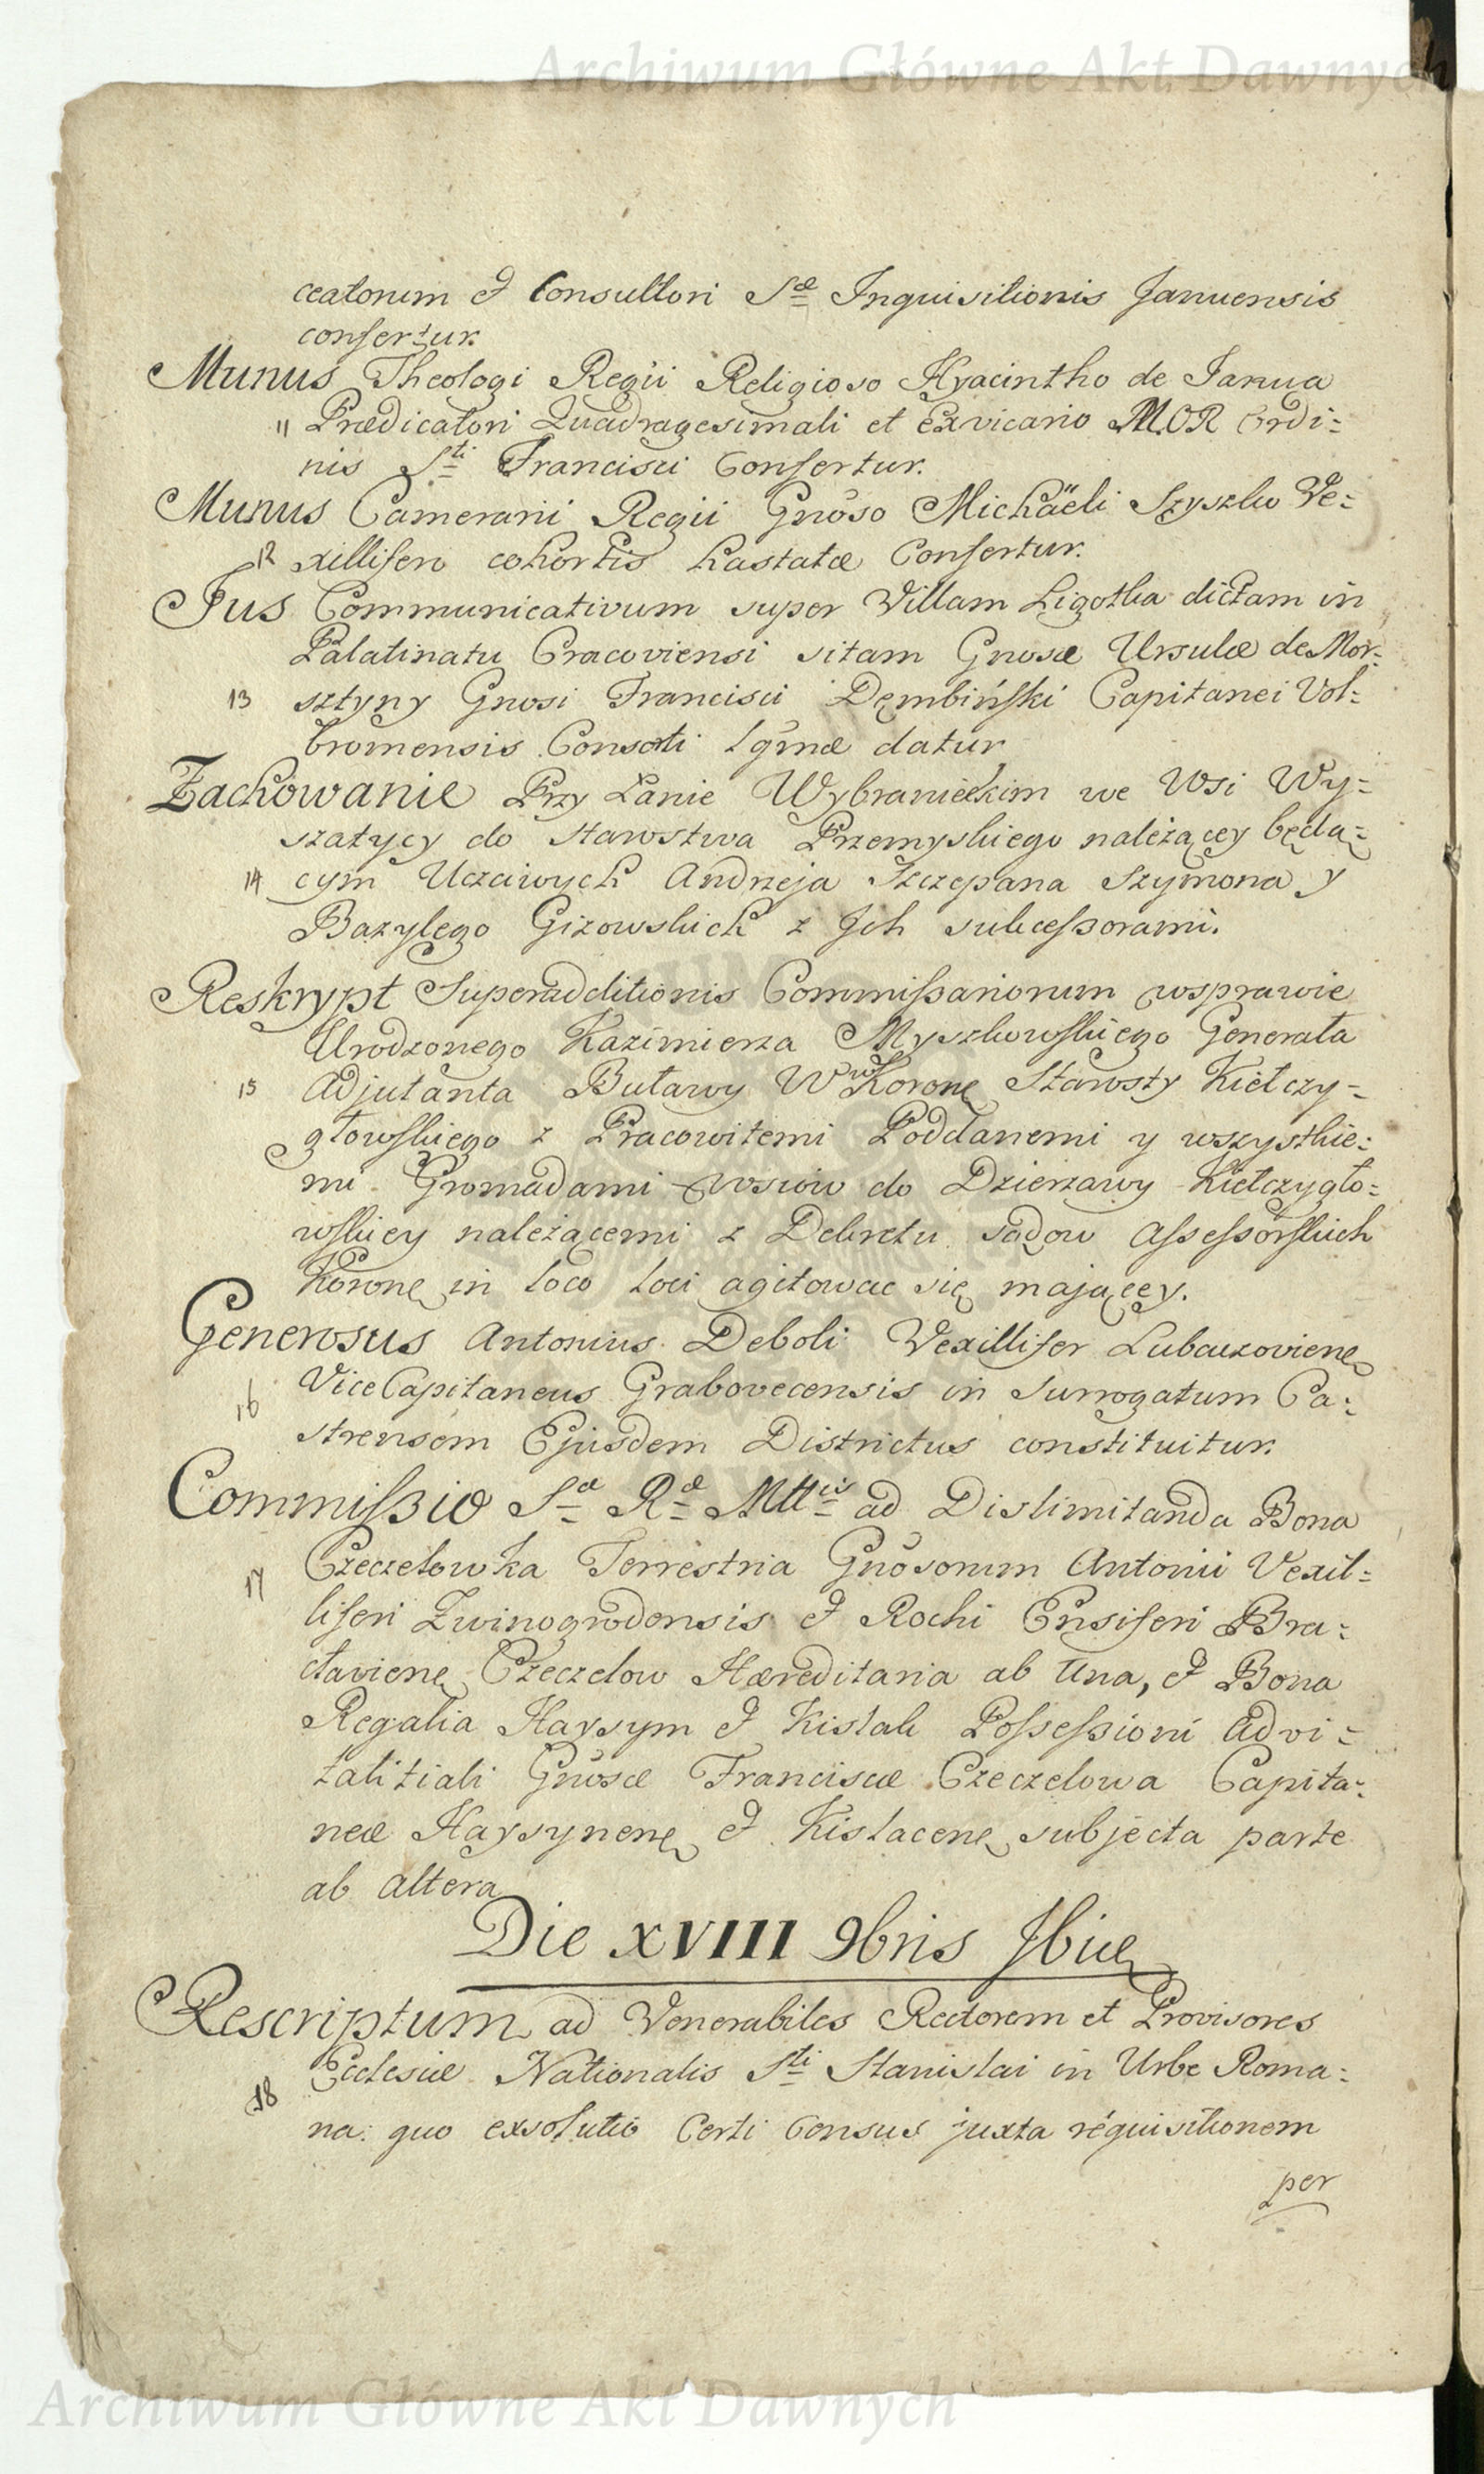 Archiwum Główne Akt Dawnych
ceatorum & Consultori Sæ Inquisitionis Januensis
confertur.
Munus Theologi Regii Religioso Hyacintho de Janua
11 Prædicatori Quadragesimali et Exvicario M.OR Ordi=
nis Sti Francisci Confertur.
Munus Camerarii Regii Gnoso Michäeli Szyszko Ve=
12 xillifero cohortis hastatæ Confertur.
Jus Communicativum super Villam Ligotka dictam in
Palatinatu Cracoviensi sitam Gnosæ Ursulæ de Mor=
13 sztyny Gnosi Francisci Dęmbińſki Capitanei Vol=
bromensis Consorti lgmæ datur
Zachowanie Przy Łanie Wybranieckim we Wsi Wy=
szatycy do Starostwa Przemyskiego należącey będą=
14 cym Uczciwych Andrzeja Szczepana Szymona y
Bazylego Gizowskich z Jch sukceſsorami.
Reskrypt Superadditionis Commiſsariorum wsprawie
Urodzonego Kazimierza Myszkowſkiego Generała
15 Adjutanta Buławy WW Koronę Starosty Kiełczy=
głowſkiego z Pracowitemi Poddanemi y wszystkie=
mi Gromadami wsiow do Dzierzawy Kiełczygło=
wſkiey należącemi z Dekretu sądow Aſseſsorſkich
Koronę in loco loci agitowac się mającey.
Generosus Antonius Deboli Vexillifer Lubaczovienę
16 ViceCapitaneus Grabovecensis in Surrogatum Ca=
strensem Ejusdem Districtus constituitur.
Commiſsio Sæ Ræ Mttis ad Dislimitanda Bona
Czeczelowka Terrestria Gnosorum Antonii Vexil=
17 liferi Zwinogrodensis & Rochi Ensiferi Bra=
clavienę Czeczelow Hæreditaria ab Una, & Bona
Regalia Haysym & Kislak Poſseſsioni advi=
talitiali Gnosæ Franciscæ Czeczelowa Capita=
neæ Haysynenę & Kislacenę subjecta parte
ab altera
Die XVIII 9bris Jbidę
Rescriptum ad Venerabiles Rectorem et Provisores
Ecclesiæ Nationalis Sti Stanislai in Urbe Roma=
18 na quo exsolutio Certi Census juxta requisitionem
per
Archiwum Główne Akt Dawnych